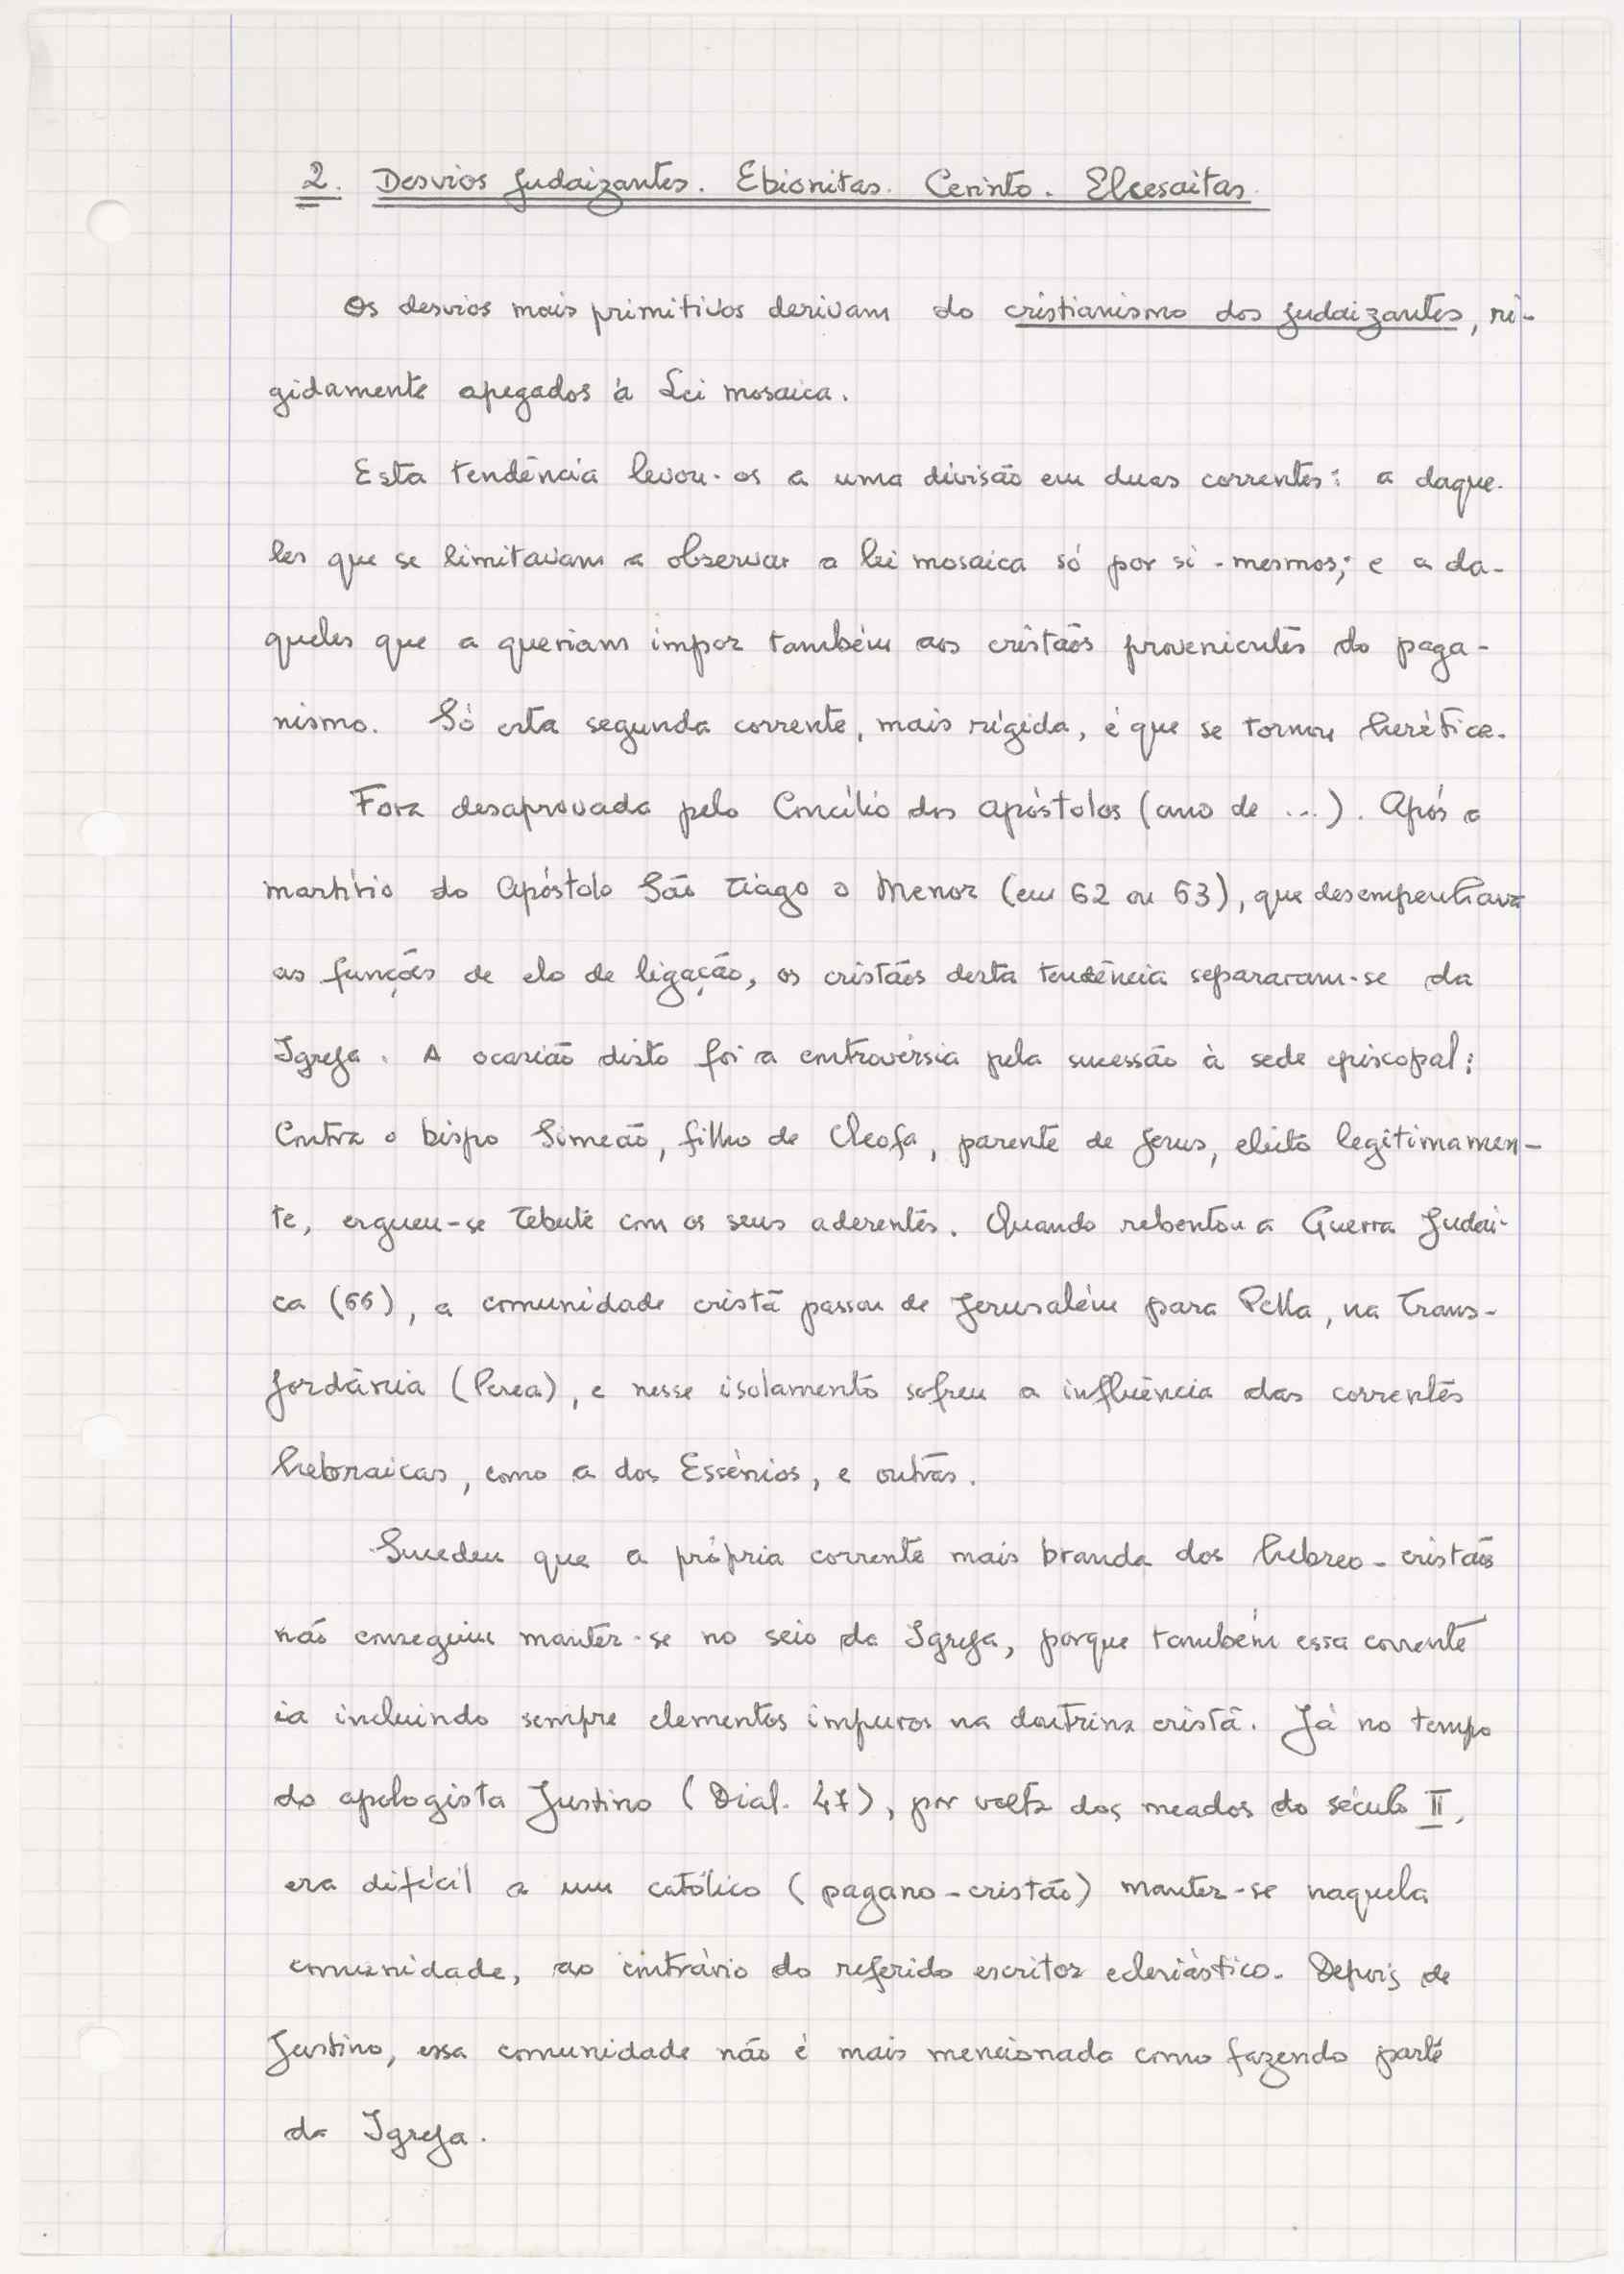 2. Desvios judaizantes. Ebionitas. Cerinto. Elcesaitas.
Os desvios mais primitivos derivam do cristianismo dos judaizantes, ri-
gidamente apegados à Lei mosaica.
Esta tendência levou-os a uma divisão em duas correntes: a daque-
les que se limitavam a observar a lei mosaica só por si-mesmos; e a da-
queles que a queriam impor também aos cristãos provenientes do paga-
nismo. Só esta segunda corrente, mais rígida, é que se tornou herética.
Fora desaprovada pelo Concílio dos Apóstolos (ano de ...). Após o
martírio do Apóstolo São Tiago o Menor (em 62 ou 63), que desempenhava
as funções de elo de ligação, os cristãos desta tendência separaram-se da
Igreja. A ocasião disto foi a controvérsia pela sucessão à sede episcopal:
Contra o bispo Simeão, filho de Cleofa, parente de Jesus, eleito legitimamen-
te, ergueu-se Tebute com os seus aderentes. Quando rebentou a Guerra Judai-
ca (66), a comunidade cristã passou de Jerusalém para Pella, na Trans-
jordânia (Perea), e nesse isolamento sofreu a influência das correntes
hebraicas, como a dos Essénios, e outras.
Sucedeu que a própria corrente mais branda dos hebreo-cristãos
não conseguiu manter-se no seio da Igreja, porque também essa corrente
ia incluindo sempre elementos impuros na doutrina cristã. Já no tempo
do apologista Justino (Dial. 47), por volta dos meados do século II,
era difícil a um católico (pagano-cristão) manter-se naquela
comunidade, ao contrário do referido escritor eclesiástico. Depois de
Justino, essa comunidade não é mais mencionada como fazendo parte
da Igreja.